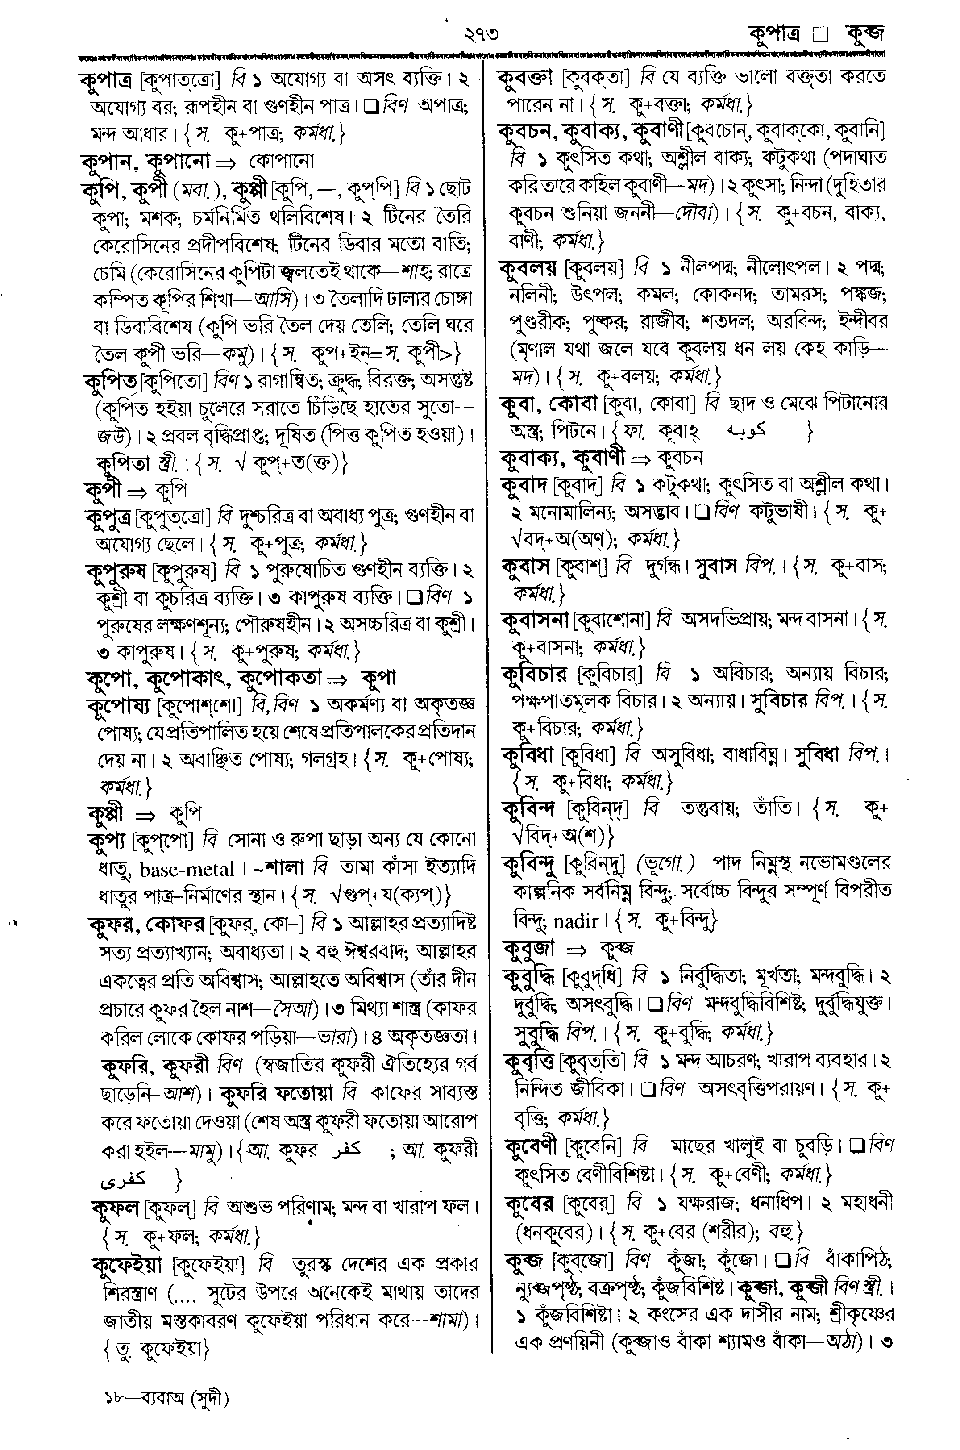 ২৭৩
কুপাত্র □ কুব্জ
কুপাত্র [কুপাত্‌ত্রো] বি ১ অযোগ্য বা অসৎ ব্যক্তি। ২
অযোগ্য বর; রূপহীন বা গুণহীন পাত্র। ❑ বিণ অপাত্র;
মন্দ আধার। {স. কু+পাত্র; কর্মধা.}
কুপান, কুপানো ⇒ কোপানো
কুপি, কুপী (মবা.), কুপ্পী [কুপি, —, কুপ্‌পি] বি ১ ছোট
কুপা; মশক; চর্মনির্মিত থলিবিশেষ। ২ টিনের তৈরি
কেরোসিনের প্রদীপবিশেষ; টিনের ডিবার মতো বাতি;
চেমি (কেরোসিনের কুপিটা জ্বলতেই থাকে—শাহ; রাত্রে
কম্পিত কুপির শিখা—আসি)। ৩ তৈলাদি ঢালার চোঙ্গা
বা ডিবাবিশেষ (কুপি ভরি তৈল দেয় তেলি; তেলি ঘরে
তৈল কুপী ভরি—কমু)। {স. কূপ+ইন=স. কূপী>}
কুপিত [কুপিতো] বিণ ১ রাগান্বিত; ক্রুদ্ধ; বিরক্ত; অসন্তুষ্ট
(কুপিত হইয়া চুলেরে সরাতে চিঁড়িছে হাতের সুতো--
জউ)। ২ প্রবল বৃদ্ধিপ্রাপ্ত; দূষিত (পিত্ত কুপিত হওয়া)।
কুপিতা স্ত্রী. : {স. √কুপ্+ত(ক্ত)}
কুপী ⇒ কুপি
কুপুত্র [কুপুত্‌ত্রো] বি দুশ্চরিত্র বা অবাধ্য পুত্র; গুণহীন বা
অযোগ্য ছেলে। {স. কু+পুত্র; কর্মধা.}
কুপুরুষ [কুপুরুষ] বি ১ পুরুষোচিত গুণহীন ব্যক্তি। ২
কুশ্রী বা কুচরিত্র ব্যক্তি। ৩ কাপুরুষ ব্যক্তি। ❑ বিণ ১
পুরুষের লক্ষণশূন্য; পৌরুষহীন। ২ অসচ্চরিত্র বা কুশ্রী।
৩ কাপুরুষ। {স. কু+পুরুষ; কর্মধা.}
কুপো, কুপোকাৎ, কুপোকতা ⇒ কুপা
কুপোষ্য [কুপোশ্‌শো] বি, বিণ ১ অকর্মণ্য বা অকৃতজ্ঞ
পোষ্য; যে প্রতিপালিত হয়ে শেষে প্রতিপালকের প্রতিদান
দেয় না। ২ অবাঞ্ছিত পোষ্য; গলগ্রহ। {স. কু+পোষ্য;
কর্মধা.}
কুপ্পী ⇒ কুপি
কুপ্য [কুপ্‌পো] বি সোনা ও রুপা ছাড়া অন্য যে কোনো
ধাতু, base-metal । ~শালা বি তামা কাঁসা ইত্যাদি
ধাতুর পাত্র-নির্মাণের স্থান। {স. √গুপ্+য(ক্যপ্)}
কুফর, কোফর [কুফর্, কো-] বি ১ আল্লাহর প্রত্যাদিষ্ট
সত্য প্রত্যাখ্যান; অবাধ্যতা। ২ বহু ঈশ্বরবাদ; আল্লাহর
একত্বের প্রতি অবিশ্বাস; আল্লাহতে অবিশ্বাস (তাঁর দীন
প্রচারে কুফর হৈল নাশ—সৈআ)। ৩ মিথ্যা শাস্ত্র (কাফর
করিল লোকে কোফর পড়িয়া—ভারা)। ৪ অকৃতজ্ঞতা।
কুফরি, কুফরী বিণ (স্বজাতির কুফরী ঐতিহ্যের গর্ব
ছাড়েনি—আশ)। কুফরি ফতোয়া বি কাফের সাব্যস্ত
করে ফতোয়া দেওয়া (শেষ অস্ত্র কুফরী ফতোয়া আরোপ
করা হইল—মামু)। {আ. কুফর كفر ; আ. কুফরী
كفرى }
কুফল [কুফল্] বি অশুভ পরিণাম; মন্দ বা খারাপ ফল।
{স. কু+ফল; কর্মধা.}
কুফেইয়া [কুফেইয়া] বি তুরস্ক দেশের এক প্রকার
শিরস্ত্রাণ (.... সুটের উপরে অনেকেই মাথায় তাদের
জাতীয় মস্তকাবরণ কুফেইয়া পরিধান করে---শামা)।
{তু. কুফেইয়া}
১৮—ব্যবাঅ (সুদী)
কুবক্তা [কুবক্‌তা] বি যে ব্যক্তি ভালো বক্তৃতা করতে
পারেন না। {স. কু+বক্তা; কর্মধা.}
কুবচন, কুবাক্য, কুবাণী [কুবচোন্, কুবাক্‌কো, কুবানি]
বি ১ কুৎসিত কথা; অশ্লীল বাক্য; কটুকথা (পদাঘাত
করি তারে কহিল কুবাণী—মদ)। ২ কুৎসা; নিন্দা (দুহিতার
কুবচন শুনিয়া জননী—দৌবা)। {স. কু+বচন, বাক্য,
বাণী; কর্মধা.}
কুবলয় [কুবলয়্] বি ১ নীলপদ্ম; নীলোৎপল। ২ পদ্ম;
নলিনী; উৎপল; কমল; কোকনদ; তামরস; পঙ্কজ;
পুণ্ডরীক; পুষ্কর; রাজীব; শতদল; অরবিন্দ; ইন্দীবর
(মৃণাল যথা জলে যবে কুবলয় ধন লয় কেহ কাড়ি—
মদ)। {স. কু+বলয়; কর্মধা.}
কুবা, কোবা [কুবা, কোবা] বি ছাদ ও মেঝে পিটানোর
অস্ত্র; পিটনে। {ফা. কূবাহ্ كوبه }
কুবাক্য, কুবাণী ⇒ কুবচন
কুবাদ [কুবাদ্] বি ১ কটুকথা; কুৎসিত বা অশ্লীল কথা।
২ মনোমালিন্য; অসদ্ভাব। ❑ বিণ কটুভাষী। {স. কু+
√বদ্+অ(অণ্); কর্মধা.}
কুবাস [কুবাশ্] বি দুর্গন্ধ। সুবাস বিপ.। {স. কু+বাস;
কর্মধা.}
কুবাসনা [কুবাশোনা] বি অসদভিপ্রায়; মন্দ বাসনা। {স.
কু+বাসনা; কর্মধা.}
কুবিচার [কুবিচার্] বি ১ অবিচার; অন্যায় বিচার;
পক্ষপাতমূলক বিচার। ২ অন্যায়। সুবিচার বিপ.। {স.
কু+বিচার; কর্মধা.}
কুবিধা [কুবিধা] বি অসুবিধা; বাধাবিঘ্ন। সুবিধা বিপ.।
{স. কু+বিধা; কর্মধা.}
কুবিন্দ [কুবিন্‌দ্] বি তন্তুবায়; তাঁতি। {স. কু+
√বিদ্+অ(শ)}
কুবিন্দু [কুবিনদু] (ভূগো.) পাদ নিম্নস্থ নভোমণ্ডলের
কাল্পনিক সর্বনিম্ন বিন্দু; সর্বোচ্চ বিন্দুর সম্পূর্ণ বিপরীত
বিন্দু; nadir। {স. কু+বিন্দু}
কুবুজা ⇒ কুব্জ
কুবুদ্ধি [কুবুদ্‌ধি] বি ১ নির্বুদ্ধিতা; মূর্খতা; মন্দবুদ্ধি। ২
দুর্বুদ্ধি; অসৎবুদ্ধি। ❑ বিণ মন্দবুদ্ধিবিশিষ্ট; দুর্বুদ্ধিযুক্ত।
সুবুদ্ধি বিপ.। {স. কু+বুদ্ধি; কর্মধা.}
কুবৃত্তি [কুবৃত্‌তি] বি ১ মন্দ আচরণ; খারাপ ব্যবহার। ২
নিন্দিত জীবিকা। ❑ বিণ অসৎবৃত্তিপরায়ণ। {স. কু+
বৃত্তি; কর্মধা.}
কুবেণী [কুবেনি] বি মাছের খালুই বা চুবড়ি। ❑ বিণ
কুৎসিত বেণীবিশিষ্টা। {স. কু+বেণী; কর্মধা.}
কুবের [কুবের্] বি ১ যক্ষরাজ; ধনাধিপ। ২ মহাধনী
(ধনকুবের)। {স. কু+বের (শরীর); বহু}
কুব্জ [কুব্‌জো] বিণ কুঁজা; কুঁজো। ❑ বি বাঁকাপিঠ;
ন্যুব্জপৃষ্ঠ; বক্রপৃষ্ঠ; কুঁজবিশিষ্ট। কুব্জা, কুব্জী বিণ স্ত্রী.।
১ কুঁজবিশিষ্টা। ২ কংসের এক দাসীর নাম; শ্রীকৃষ্ণের
এক প্রণয়িনী (কুব্জাও বাঁকা শ্যামও বাঁকা—অঠা)। ৩